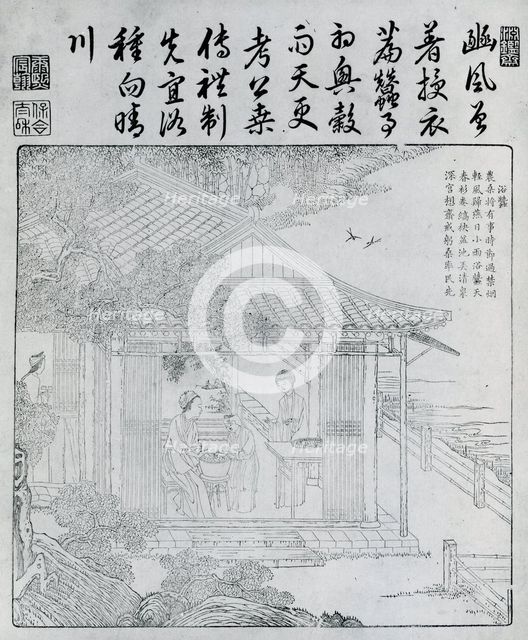 淵鑒齋
豳風曾
著授衣
篇蠶事
初興穀
雨天更
考公桑
傳禮制
先宜浴
種向晴
川
康熙宸翰
保合太和
浴蠶
農桑將有事時節過禁烟
輕風歸燕日小雨浴蠶天
春衫卷縞袂盆池弄清泉
深宮想齋戒躬桑率民先
Heritage Heritage
Heritage Heritage Heritage
Heritage Heritage
Heritage Heritage Heritage